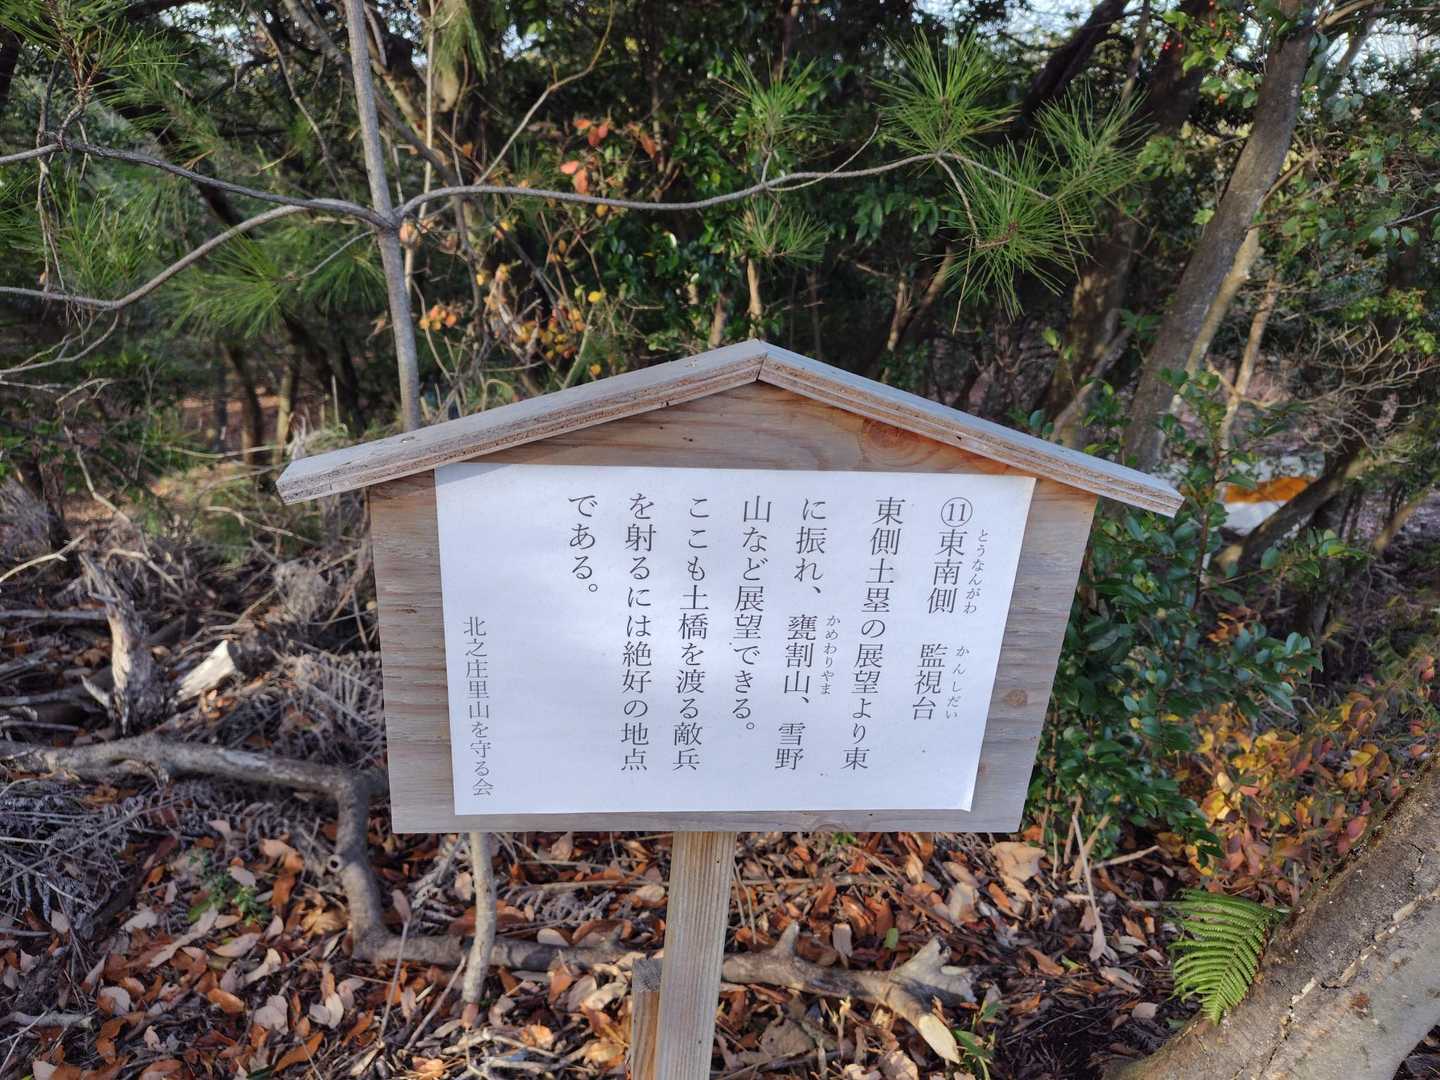 ⑪東南側　監視台
とうなんがわ　かんしだい
東側土塁の展望より東
に振れ、甕割山、雪野
かめわりやま
山など展望できる。
ここも土橋を渡る敵兵
を射るには絶好の地点
である。
北之庄里山を守る会